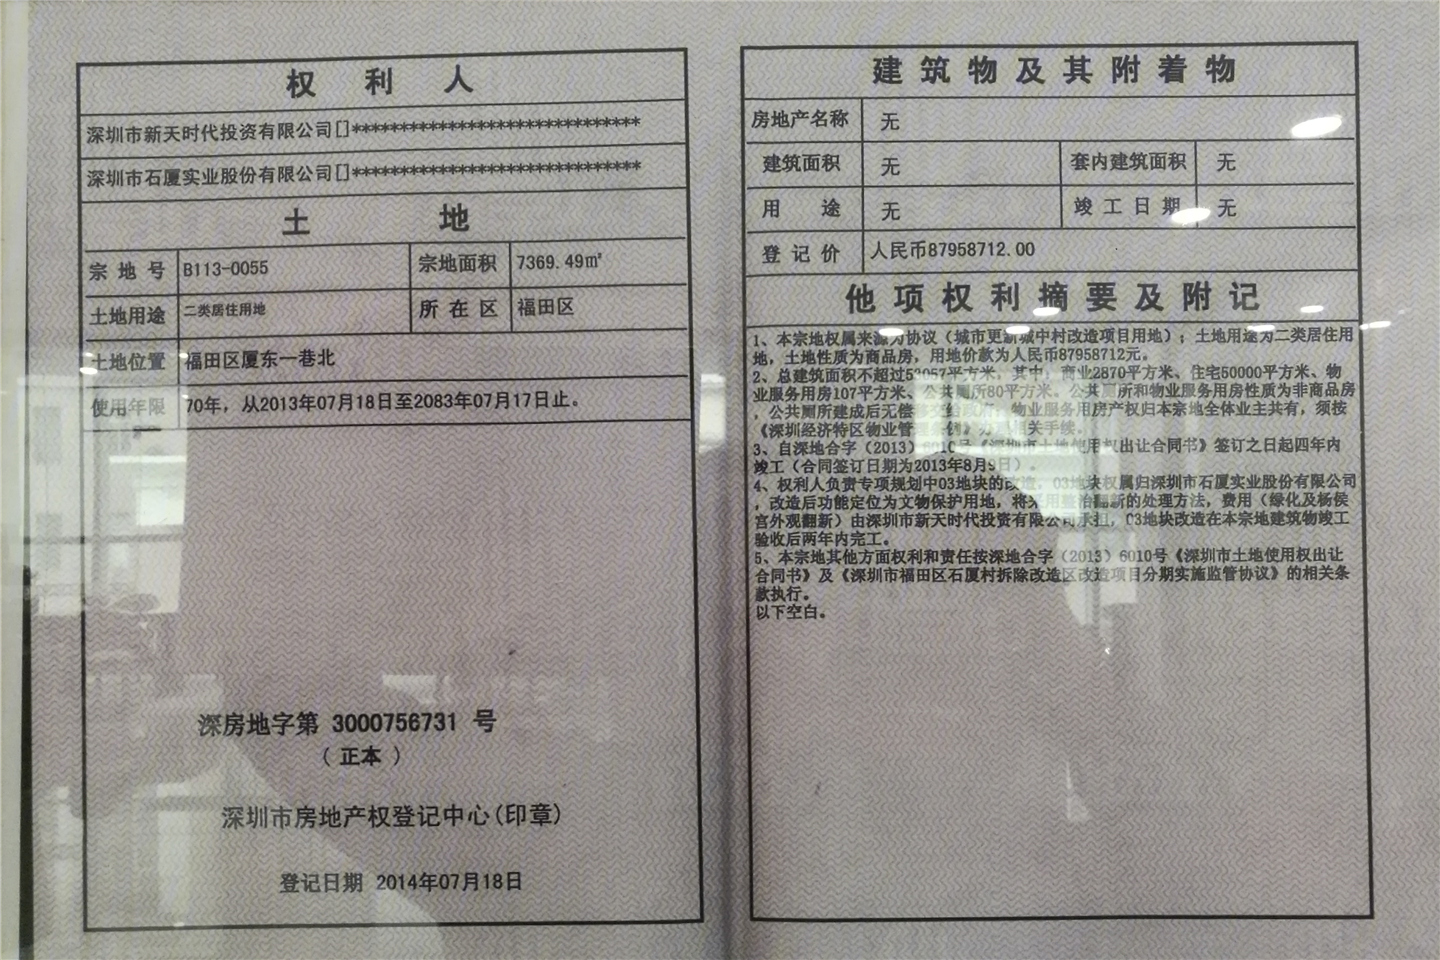 权利人
深圳市新天时代投资有限公司[]******************************
深圳市石厦实业股份有限公司[]******************************
土地
宗地号 B113-0055 宗地面积 7369.49㎡
土地用途 二类居住用地 所在区 福田区
土地位置 福田区厦东一巷北
使用年限 70年，从2013年07月18日至2083年07月17日止。
深房地字第 3000756731 号
（正本）
深圳市房地产权登记中心(印章)
登记日期 2014年07月18日
建筑物及其附着物
房地产名称 无
建筑面积 无 套内建筑面积 无
用途 无 竣工日期 无
登记价 人民币87958712.00
他项权利摘要及附记
1、本宗地权属来源为协议（城市更新城中村改造项目用地）；土地用途为二类居住用
地，土地性质为商品房，用地价款为人民币87958712元。
2、总建筑面积不超过53057平方米，其中，商业2870平方米、住宅50000平方米、物
业服务用房107平方米、公共厕所80平方米。公共厕所和物业服务用房性质为非商品房
，公共厕所建成后无偿移交给政府；物业服务用房产权归本宗地全体业主共有，须按
《深圳经济特区物业管理条例》办理相关手续。
3、自深地合字（2013）6010号《深圳市土地使用权出让合同书》签订之日起四年内
竣工（合同签订日期为2013年8月9日）。
4、权利人负责专项规划中03地块的改造，03地块权属归深圳市石厦实业股份有限公司
，改造后功能定位为文物保护用地，将采用整治翻新的处理方法，费用（绿化及杨侯
宫外观翻新）由深圳市新天时代投资有限公司承担，03地块改造在本宗地建筑物竣工
验收后两年内完工。
5、本宗地其他方面权利和责任按深地合字（2013）6010号《深圳市土地使用权出让
合同书》及《深圳市福田区石厦村拆除改造区改造项目分期实施监管协议》的相关条
款执行。
以下空白。